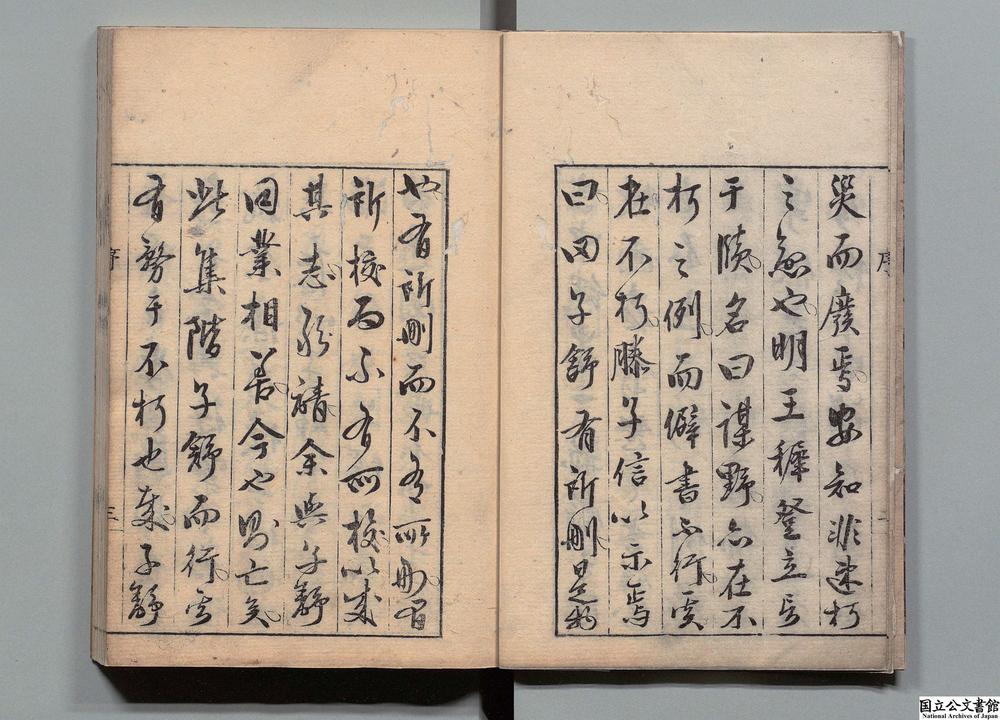 序
災而廢焉安知非速朽
之之也明王穉登立言
于牘名曰謀野亦在不
朽之例而僻書不行云
在不朽滕子信以示焉
曰田子舒有所刪是
二
也有所刪而不有所刪
所校而不有所校以成
其志能請余與子靜
同業相善今也則亡矣
此集階子舒而行言
有勞于不朽也哉子靜
序
三
国立公文書館
National Archives of Japan